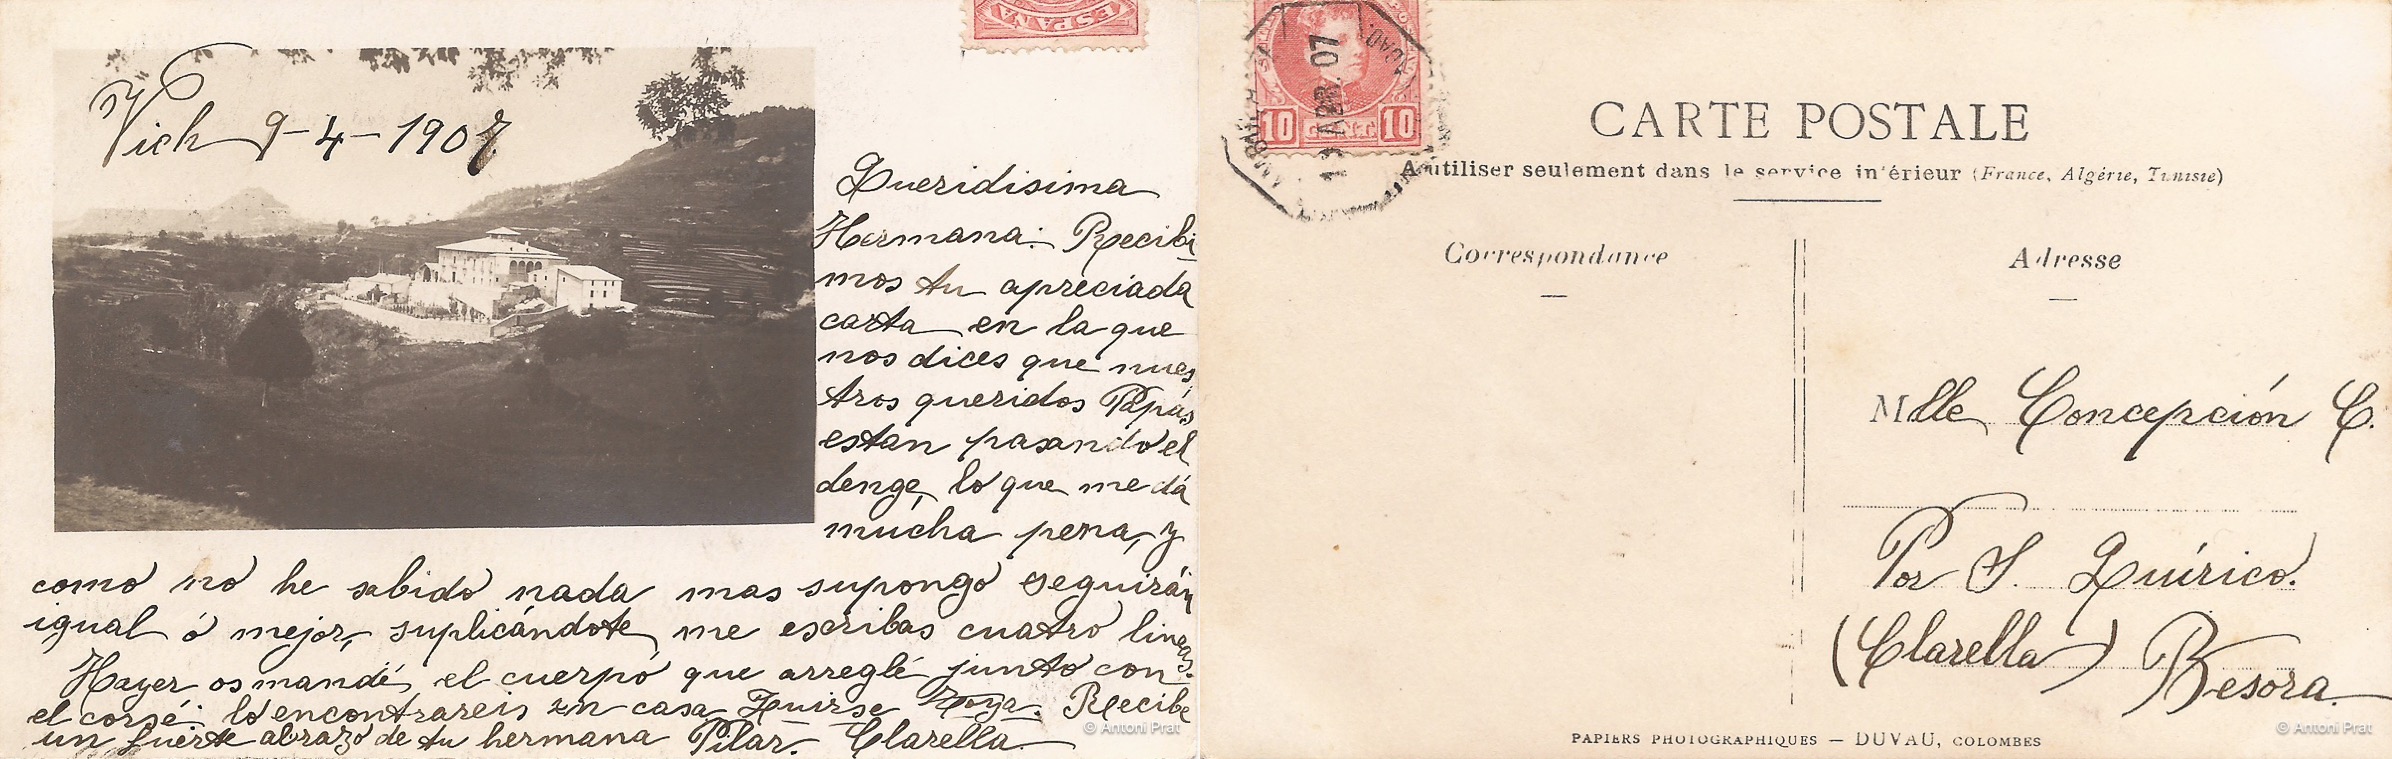 ESPAÑA
Vich 9-4-1907
Queridisima
Hermana: Recibi
mos tu apreciada
carta en la que
nos dices que nues
tros queridos Papás
estan pasando el
denge, lo que me dá
mucha pena, y
como no he sabido nada mas supongo seguirán
igual ó mejor, suplicándote me escribas cuatro lineas.
Hayer os mandé el cuerpo que arreglé junto con
el corsé: lo encontrareis en casa Roya. Recibe
un fuerte abrazo de tu hermana Pilar. Clarella
© Antoni Prat
10 CENT. 10
ABR. 07
CARTE POSTALE
A utiliser seulement dans le service intérieur (France, Algérie, Tunisie)
Correspondance
Adresse
Mlle Concepción C.
Por S. Quírico.
(Clarella) Besora.
PAPIERS PHOTOGRAPHIQUES — DUVAU, COLOMBES
© Antoni Prat